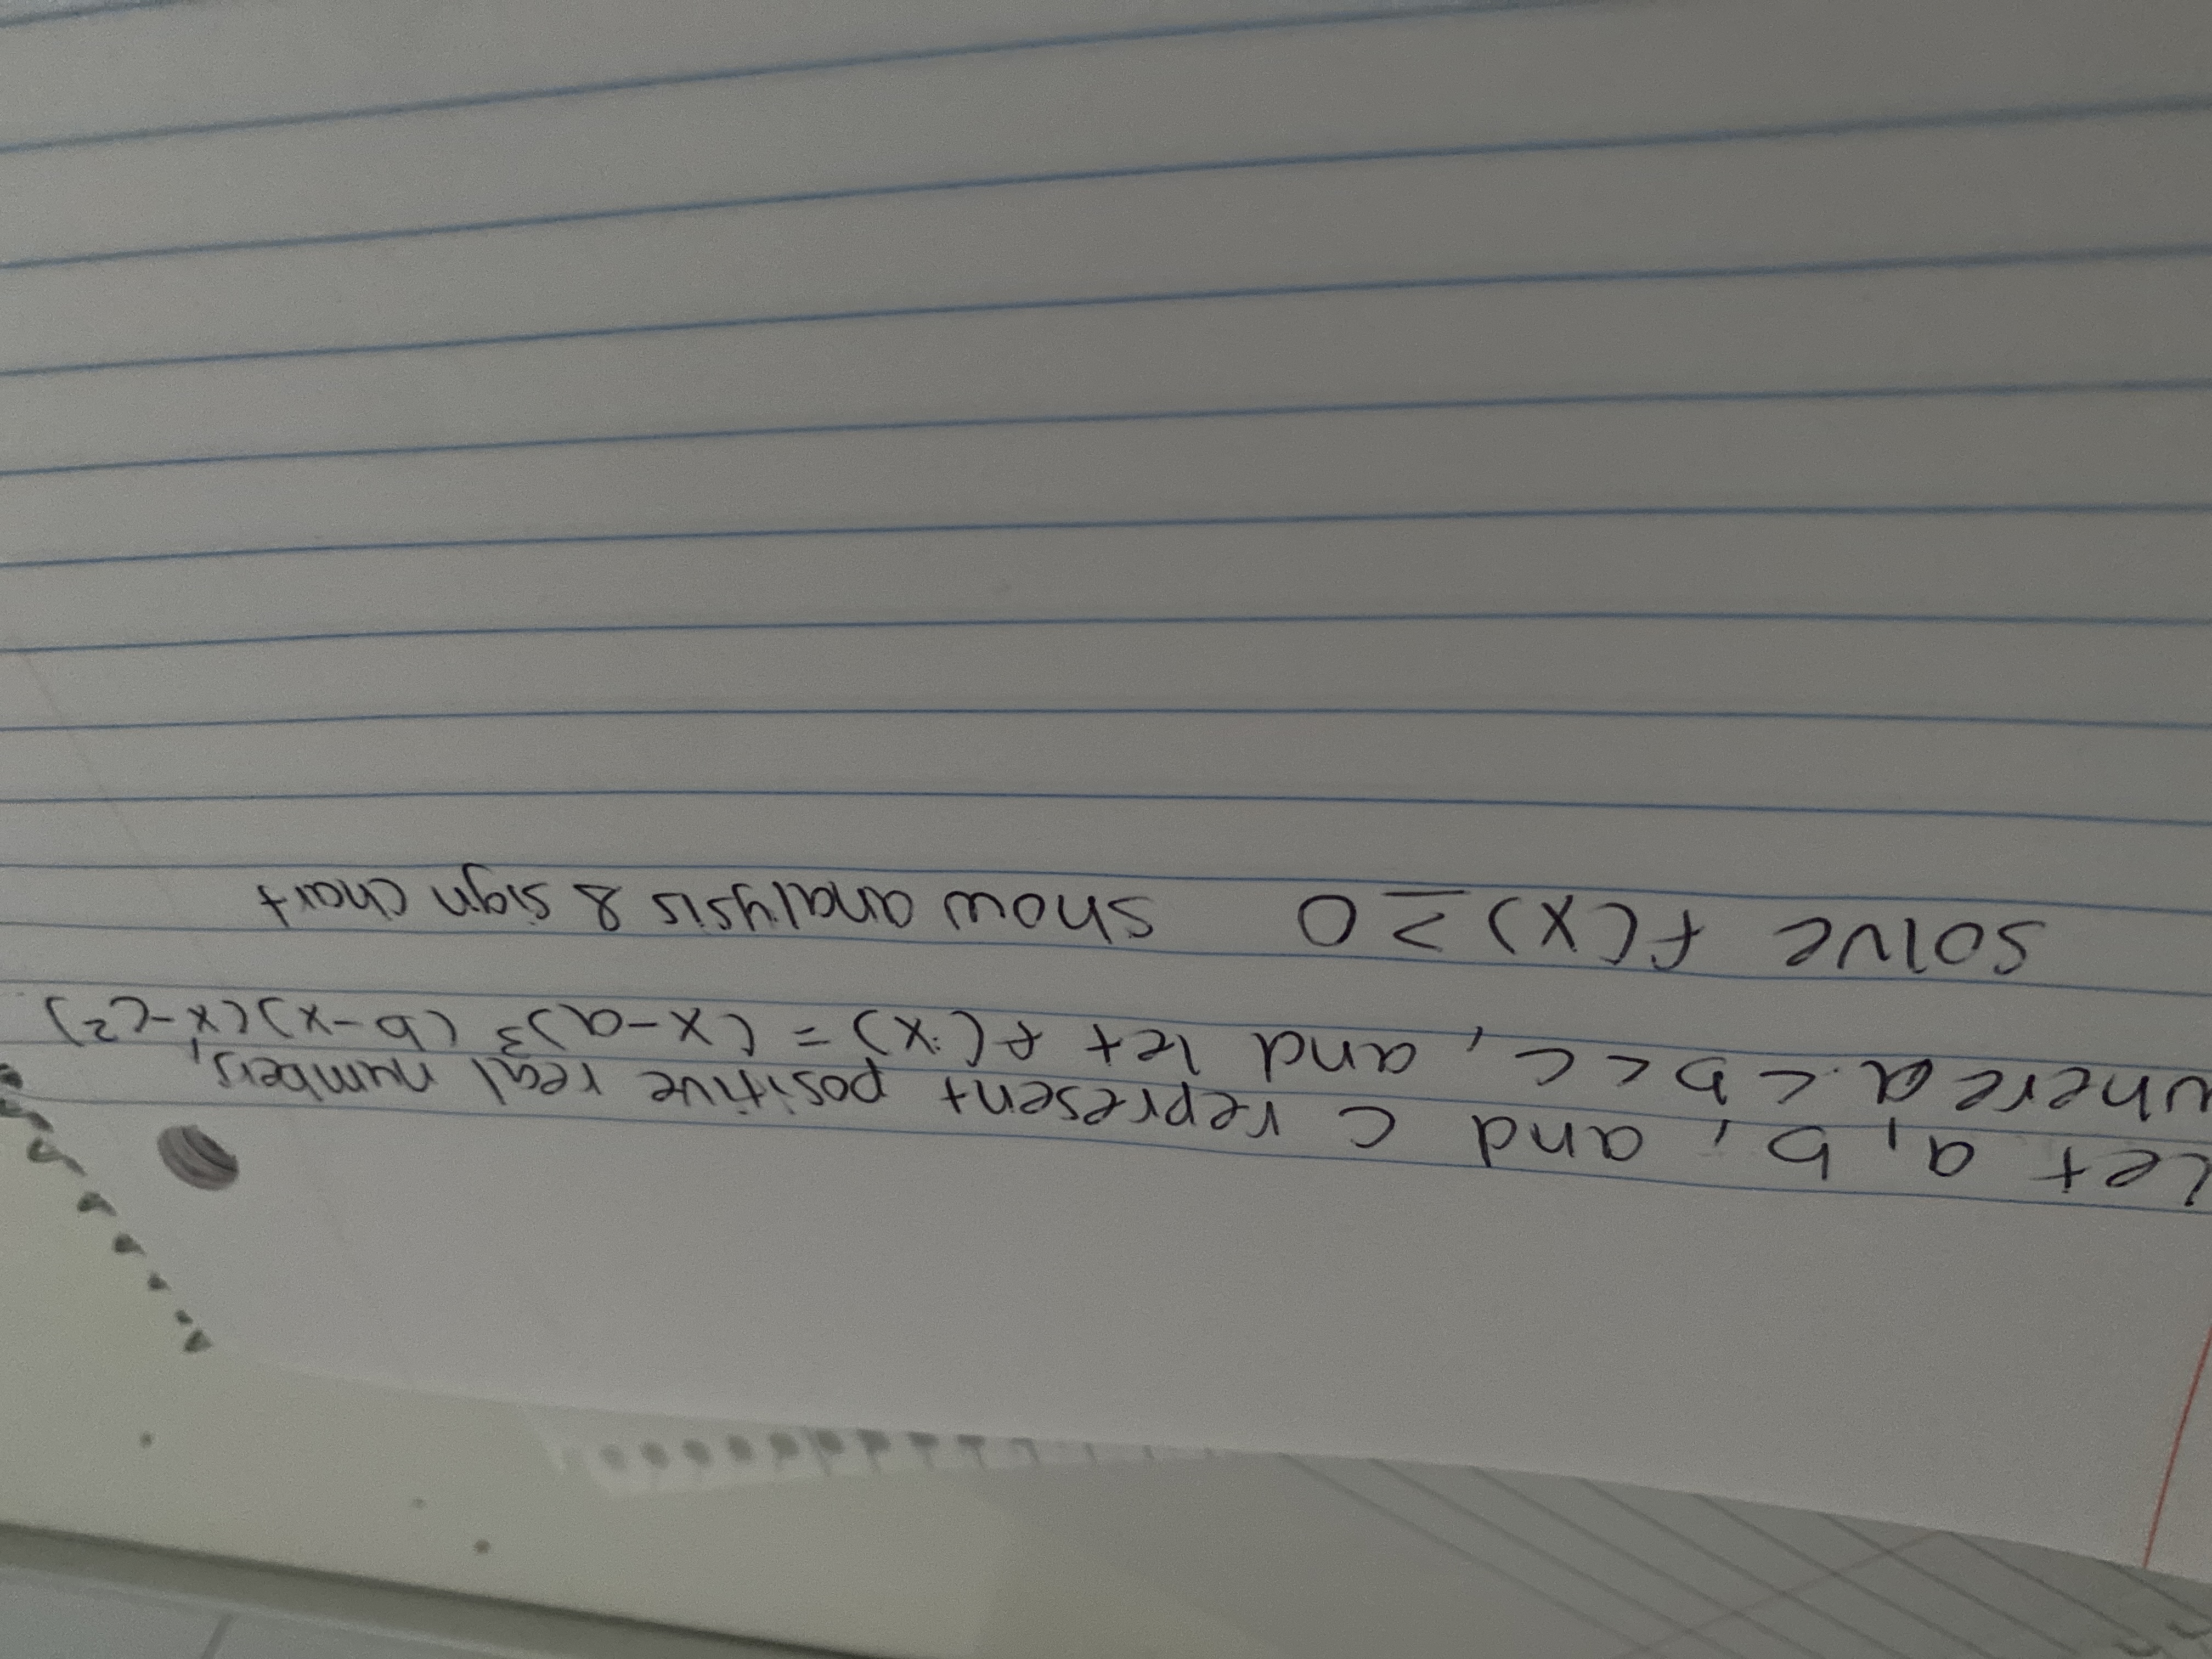 Let a, b, and c represent positive real numbers,
where a < b < c, and let f(x) = (x-a)³ (b-x)(x-c²)
solve f(x) ≥ 0 show analysis & sign chart